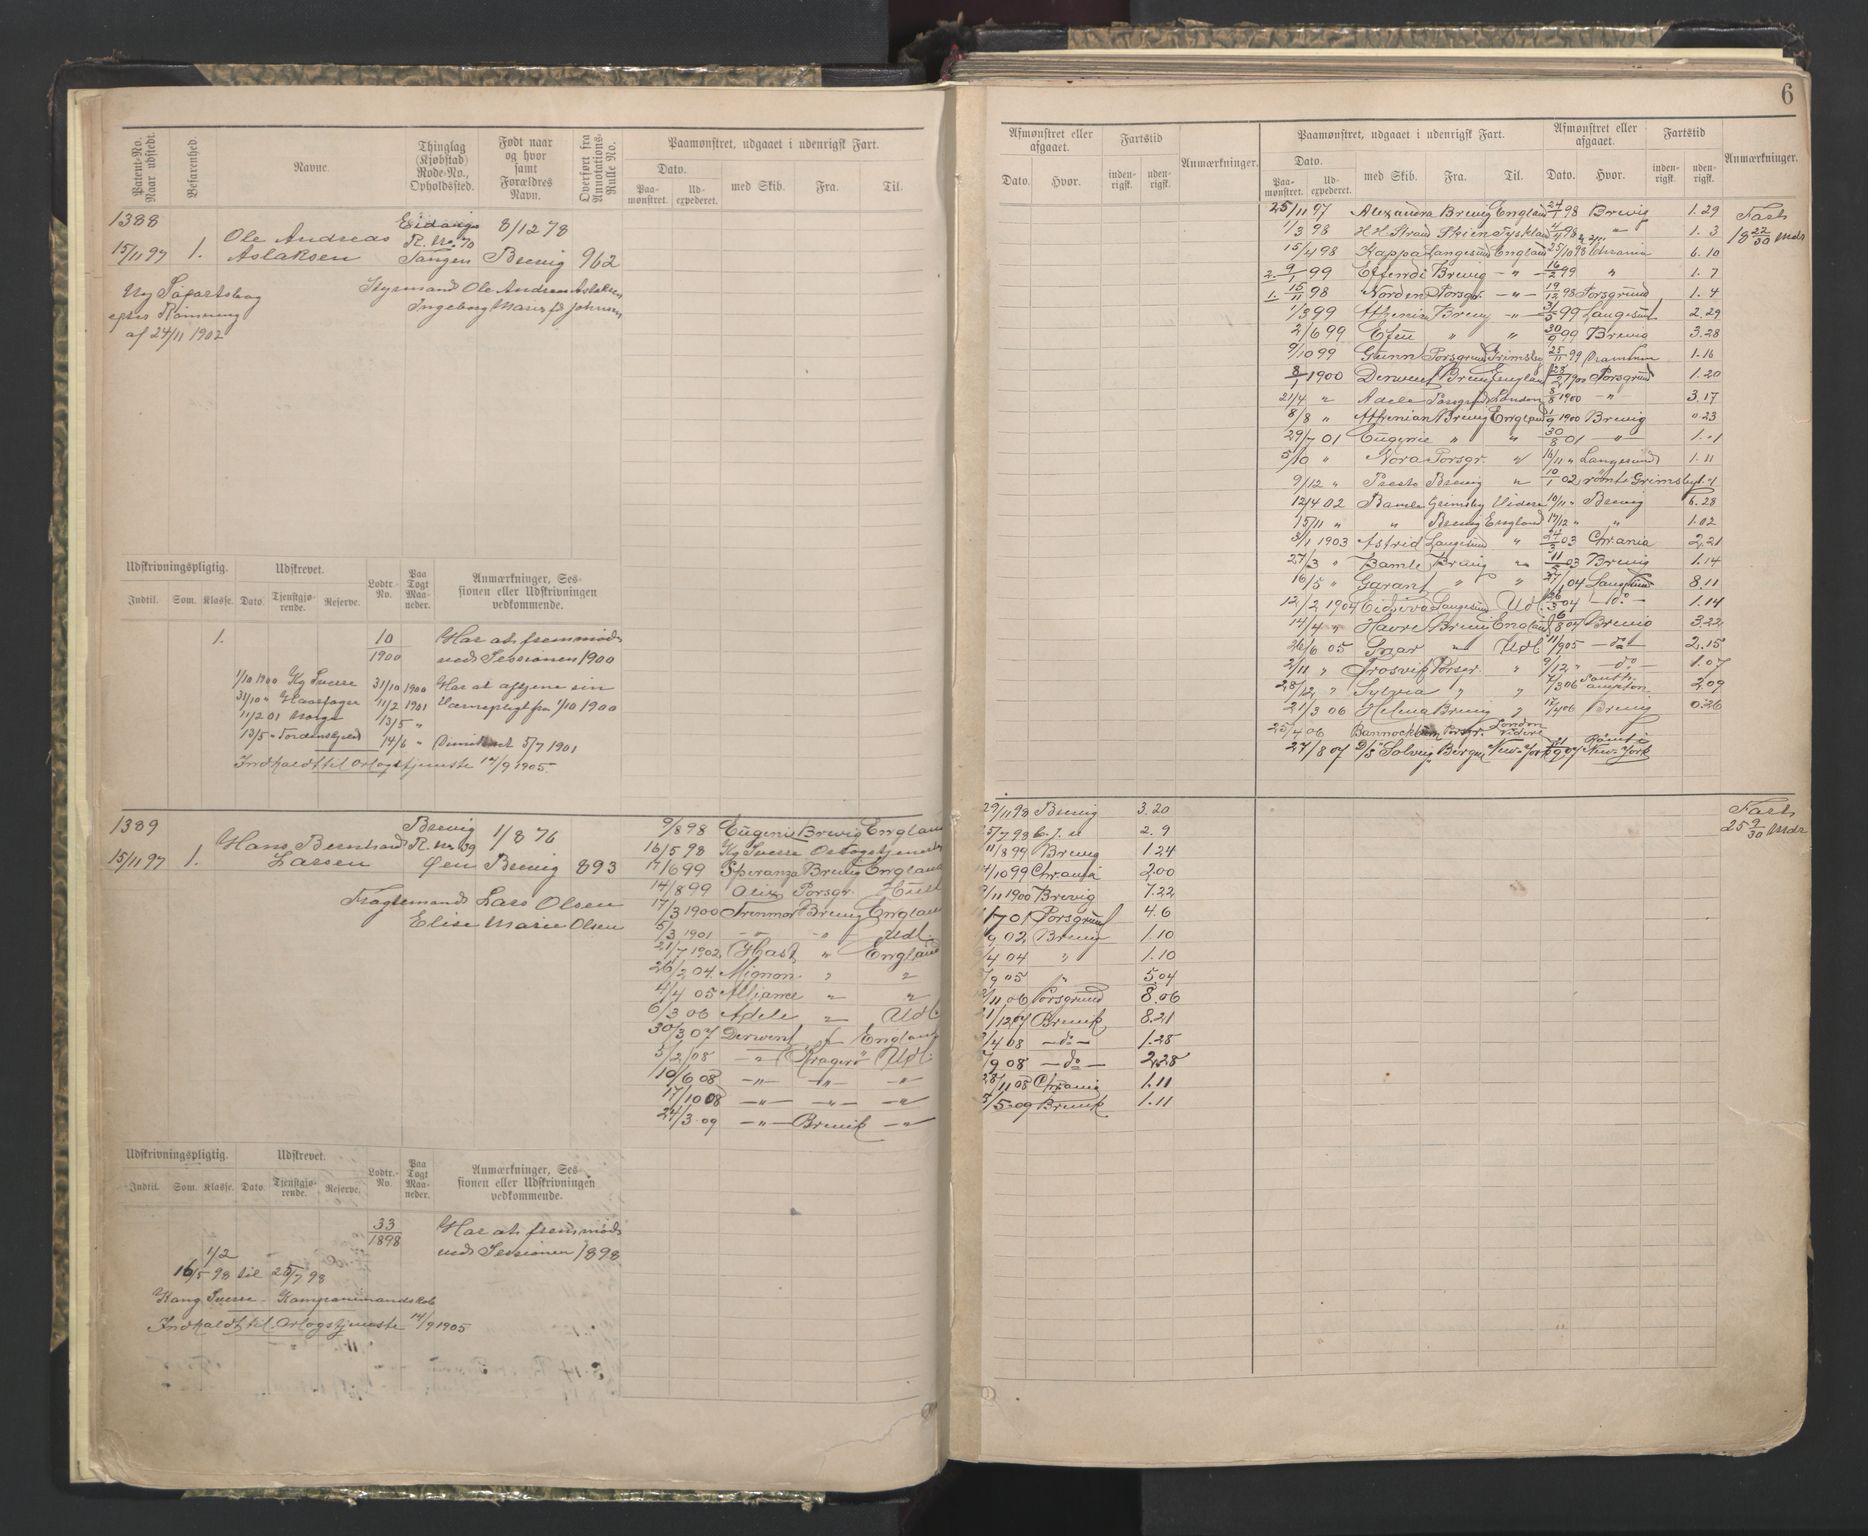 6
Patent-No. Naar udstedt.
Befarenhed
Navne.
Thinglag (Kjøbstad) Rode-No., Opholdssted.
Født naar og hvor samt Forældres Navn.
Overført fra Annotations-Rulle No.
Paamønstret, udgaaet i udenrigsk Fart.
Dato.
Paa-mønstret.
Ud-expederet.
med Skib.
Fra.
Til.
1388
15/11 97
1.
Ole Andreas
Aslaksen
Eidanger
R. No. 70
Tangen
8/12 78
Brevig
962
Ny Søfartsbog
efter Rømning
af 24/11 1902
Styrmand Ole Andreas Aslaksen
Ingeborg Marie f. Johnsen
Udskrivningspligtig.
Udskrevet.
Lodtr.-No.
Paa Togt Maa-neder.
Anmærkninger, Ses-
sionen eller Udskrivningen
vedkommende.
Indtil.
Som.
Klasse.
Dato.
Tjenstgjø-rende.
Reserve.
1.
10
1900
Har at fremmøde
ved Sessionen 1900
1/10 1900 Kg Sverre 31/10 1900 Har at aftjene sin
31/10 " Haarfager 11/2 1901 Værnepligt fra 1/10 1900
11/2 01 Norge 13/5 "
13/5 " Tordenskjold 14/6 " Dimitteret 5/7 1901
Indkaldt til Orlogstjeneste 14/9 1905.
1389
15/11 97
1.
Hans Bernhard
Larsen
Brevig
R. No 39
Øen
1/8 76
Brevig
893
Fragtemand Lars Olsen
Elise Marie Olsen
9/8 98 Eugenie Brevig England
16/5 98 Kg Sverre Orlogstjeneste
17/6 99 Speranza Brevig England
14/8 99 Olix Porsgr. Hull
17/3 1900 Trenmor Brevig England
5/3 1901 — " — — " — Udl.
21/7 1902 Hast " England
26/2 04. Mignon " "
4/4 05 Alliance " "
6/3 06 Adele " Udl.
30/3 07 Derwent " England
3/2 08 — " — Kragerø Udl.
10/6 08 — " — — " — — " —
17/10 08 — " — — " — — " —
24/3 09 — " — Brevik — " —
Udskrivningspligtig.
Udskrevet.
Lodtr.-No.
Paa Togt Maa-neder.
Anmærkninger, Ses-
sionen eller Udskrivningen
vedkommende.
Indtil.
Som.
Klasse.
Dato.
Tjenstgjø-rende.
Reserve.
33
1898
Har at fremmøde
ved Sessionen 1898
1/2
16/5 98 til 25/7 98
Kong Sverre
Indkaldt til Orlogstjeneste 14/9 1905
Afmønstret eller afgaaet.
Fartstid
Anmærkninger.
Dato.
Hvor.
inden-rigsk.
uden-rigsk.
Paamønstret, udgaaet i udenrigsk Fart.
Afmønstret eller afgaaet.
Fartstid
Anmærkninger.
Dato.
Paa-mønstret.
Ud-expederet.
med Skib.
Fra.
Til.
Dato.
Hvor.
inden-rigsk.
uden-rigsk.
25/11 97 Alexandra Brevig England 24/1 98 Brevig 1.29
1/3 98 H. H. Strand Skien Tyskland 4/4 98 " 1.3
15/4 98 Kappa Langesund England 25/10 98 Chrania 6.10
2. 9/1 99 Effendi Brevig — " — 16/2 99 " 1.7
1. 15/11 98 Norden Porsgr. — " — 19/12 98 Porsgrund 1.4
1/3 99 Athenian Brevig — " — 31/5 99 Langesund 2.29
2/6 99 " " 30/9 99 Brevig 3.28
9/10 99 Gunn Porsgrund Grimsby 25/11 99 Drammen 1.16
8/1 1900 Derwent Brevig England 28/2 1900 Porsgrund 1.20
21/4 " Adele Porsgrund London 8/8 1900 — " — 3.17
8/8 " Athenian Brevig England 1/9 1900 Brevig " 23
29/7 01 Eugenie " " 30/8 01 — " — 1.1
5/10 " Nora Porsgr. " 16/11 " Langesund 1.11
9/12 " Presto Brevig " 10/1 02 rømt i Grimsby 1.1
12/4 02 Bamle Grimsby Videre 10/11 " Brevig 6.28
15/11 " " Brevig England 17/12 " " 1.02
3/1 1903 Astrid Langesund " 24/3 03 Chrania 2.21
27/3 " Bamle Brevig " 11/5 03 Brevig 1.14
16/5 " Garant " " 27/1 04 Langesund 8.11
12/2 1904 Eidsiva Langesund Udl. 26/3 04 — do — 1.14
14/4 " Havre Brevig England 6/8 04 Brevig 3.22
26/6 05 Snar " Udl. 11/9 05 — do — 2.15
2/11 " Frosvik Porsgr. " 9/12 " — do — 1.07
28/12 " Sylvia " " 7/3 06 Southampton. 2.09
21/3 06 Helena Brevig " 17/4 06 Brevig 0.26
25/4 06 Bannockburn Porsgr. London videre
27/8 07 D/S Solveig Bergen New-York 21/9 07 Rømt i New-York
Fart
18 22/30 Mdr
29/11 98 Brevig 3.20
25/7 98 2.9
11/8 99 Brevig 1.24
14/10 99 Chrania 2.00
9/11 1900 Brevig 7.22
7 01 Porsgrund 4.6
9 02 Brevig 1.10
4 04 " 1.10
9 05 " 5.04
11 06 Porsgrund 8.06
21/12 07 Brevik 8.21
4 08 — do — 1.28
9 08 — do — 2.28
28/11 08 Chrania 1.11
5/5 09 Brevik 1.11
Fart
25 9/30 Mdr